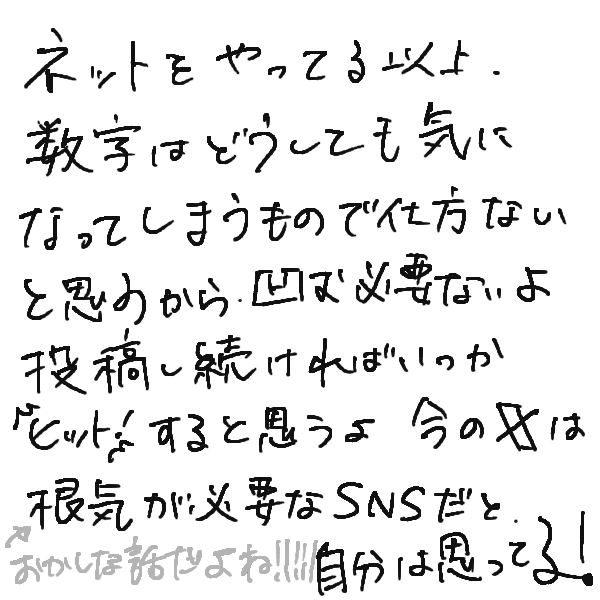 ネットをやってる以上、
数字はどうしても気に
なってしまうもので仕方ない
と思うから、凹む必要ないよ
投稿し続ければいつか
"ヒット!"すると思うよ 今のXは
根気が必要なSNSだと、
自分は思ってる!
おかしな話だよね!!!!!!